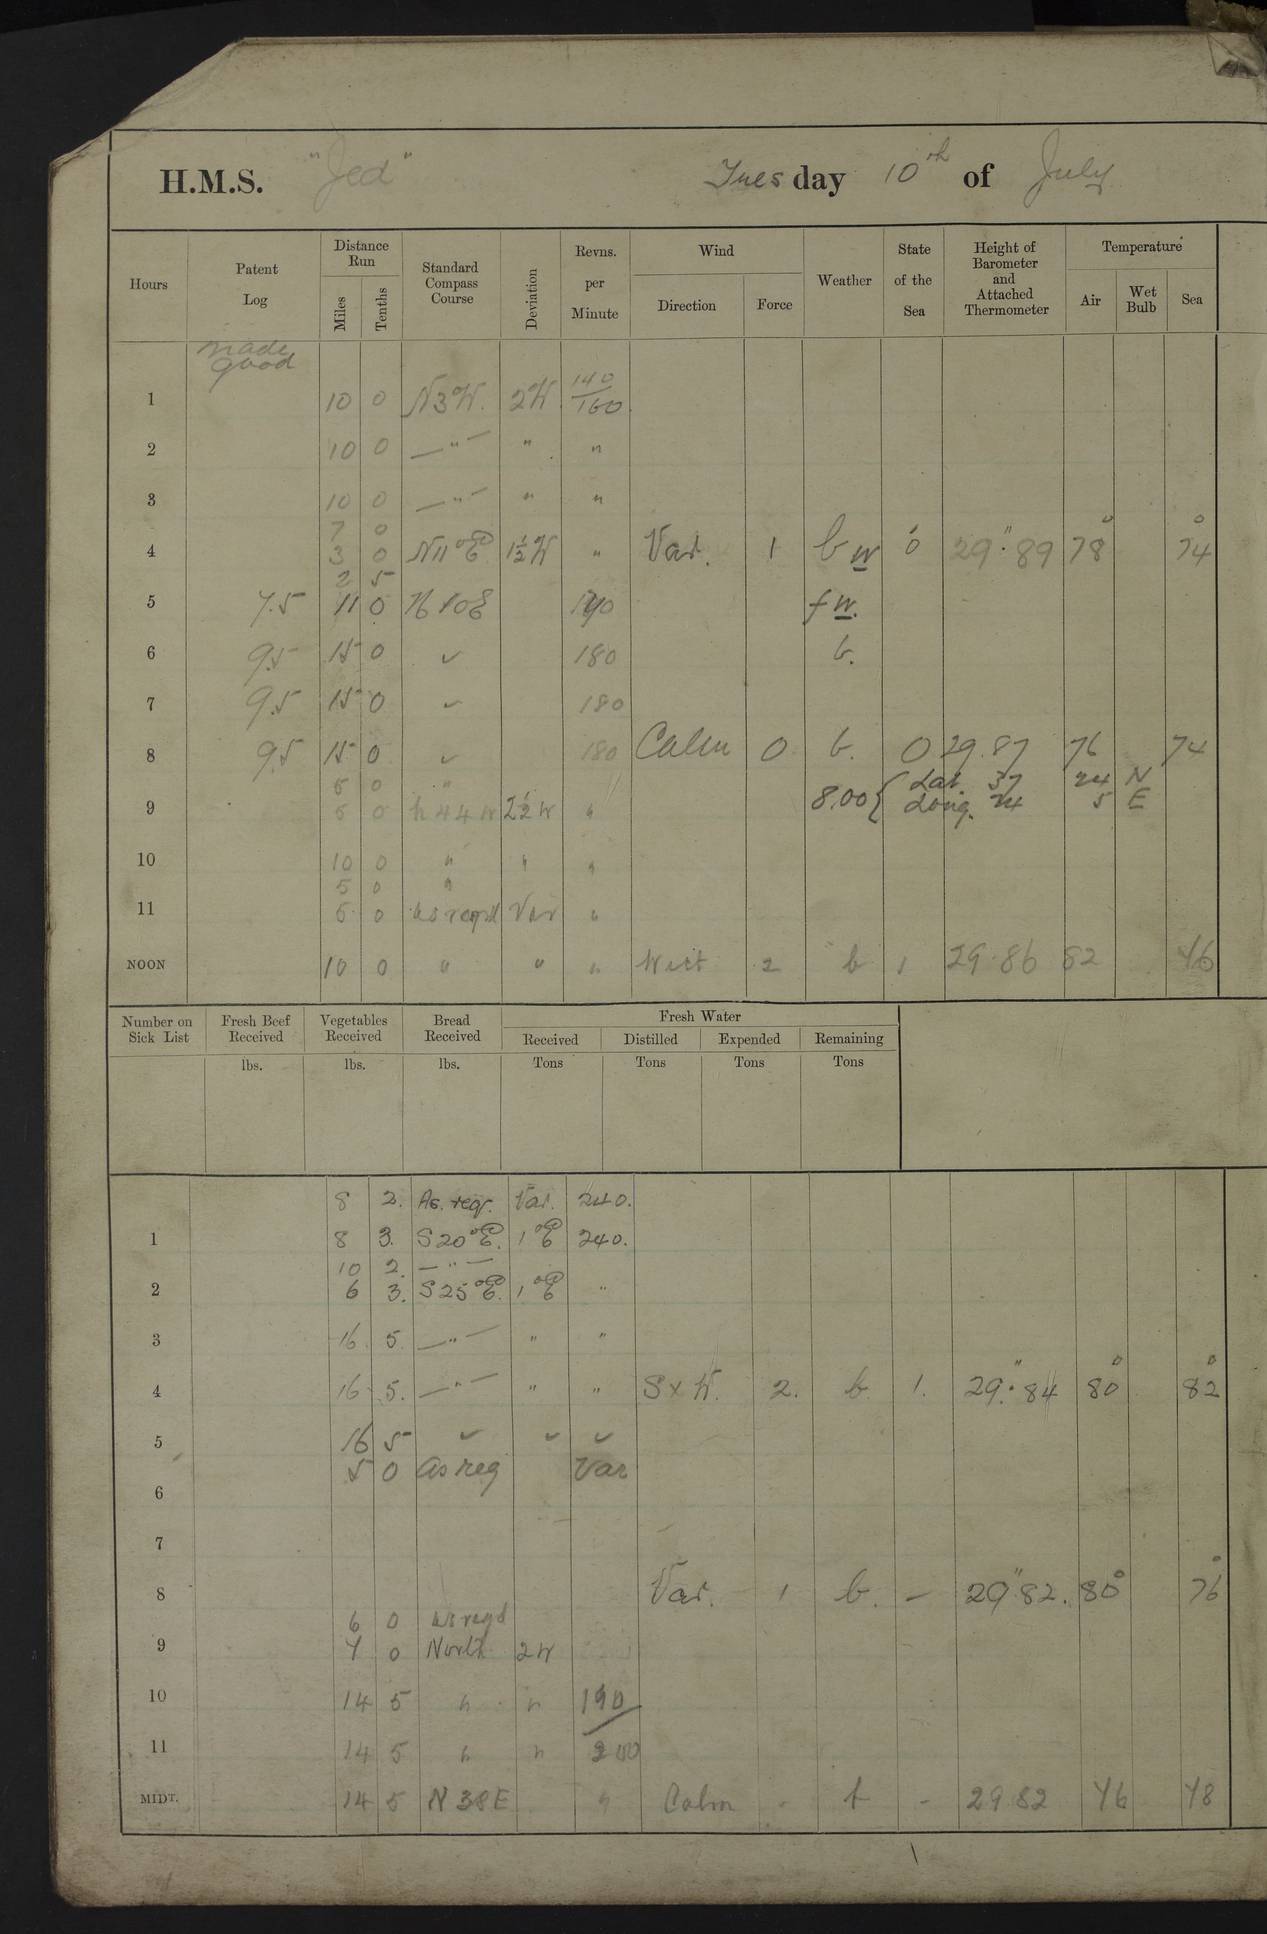 H.M.S. "Jed" Tuesday 10th of July
Hours Patent Log Distance Run Miles Tenths Standard Compass Course Deviation Revns. per Minute Wind Direction Force Weather State of the Sea Height of Barometer and Attached Thermometer Temperature Air Wet Bulb Sea
made good
1 10 0 N3°W. 2°W 140/160
2 10 0 — " — " "
3 10 0 — " — " "
7 0
4 3 0 N11°E 1½°W " Var. 1 b w 0 29".89 78° 74°
2 5
5 7.5 11 0 N10E f w.
6 9.5 15 0 ✓ 180 b.
7 9.5 15 0 ✓ 180
8 9.5 15 0 ✓ 180 Calm 0 b. 0 29.87 76 74
5 0 " 8.00 { Lat. 37 24 N
9 5 0 N 44 W 2½ W " Long. 24 5 E
10 10 0 " " "
5 0 "
11 5 0 as reqd Var "
NOON 10 0 " " " West 2 b 1 29.86 82 76
Number on Sick List Fresh Beef Received Vegetables Received Bread Received Fresh Water Received Distilled Expended Remaining
lbs. lbs. lbs. Tons Tons Tons Tons
8 2. As. req. Var. 240.
1 8 3. S20°E. 1°E 240.
10 2. — " —
2 6 3. S25°E. 1°E "
3 16 5 — " — " "
4 16 5. — " — " " S x W. 2. b. 1. 29".84 80° 82°
5 16 5 ✓ ✓ ✓
5 0 As req Var
6
7
8 Var. 1 b. – 29".82. 80° 76°
6 0 as reqd
9 7 0 North 2W
10 14 5 " " 190/
11 14 5 " " 200
MIDT. 14 5 N 38E " Calm - b - 29 82 76 78